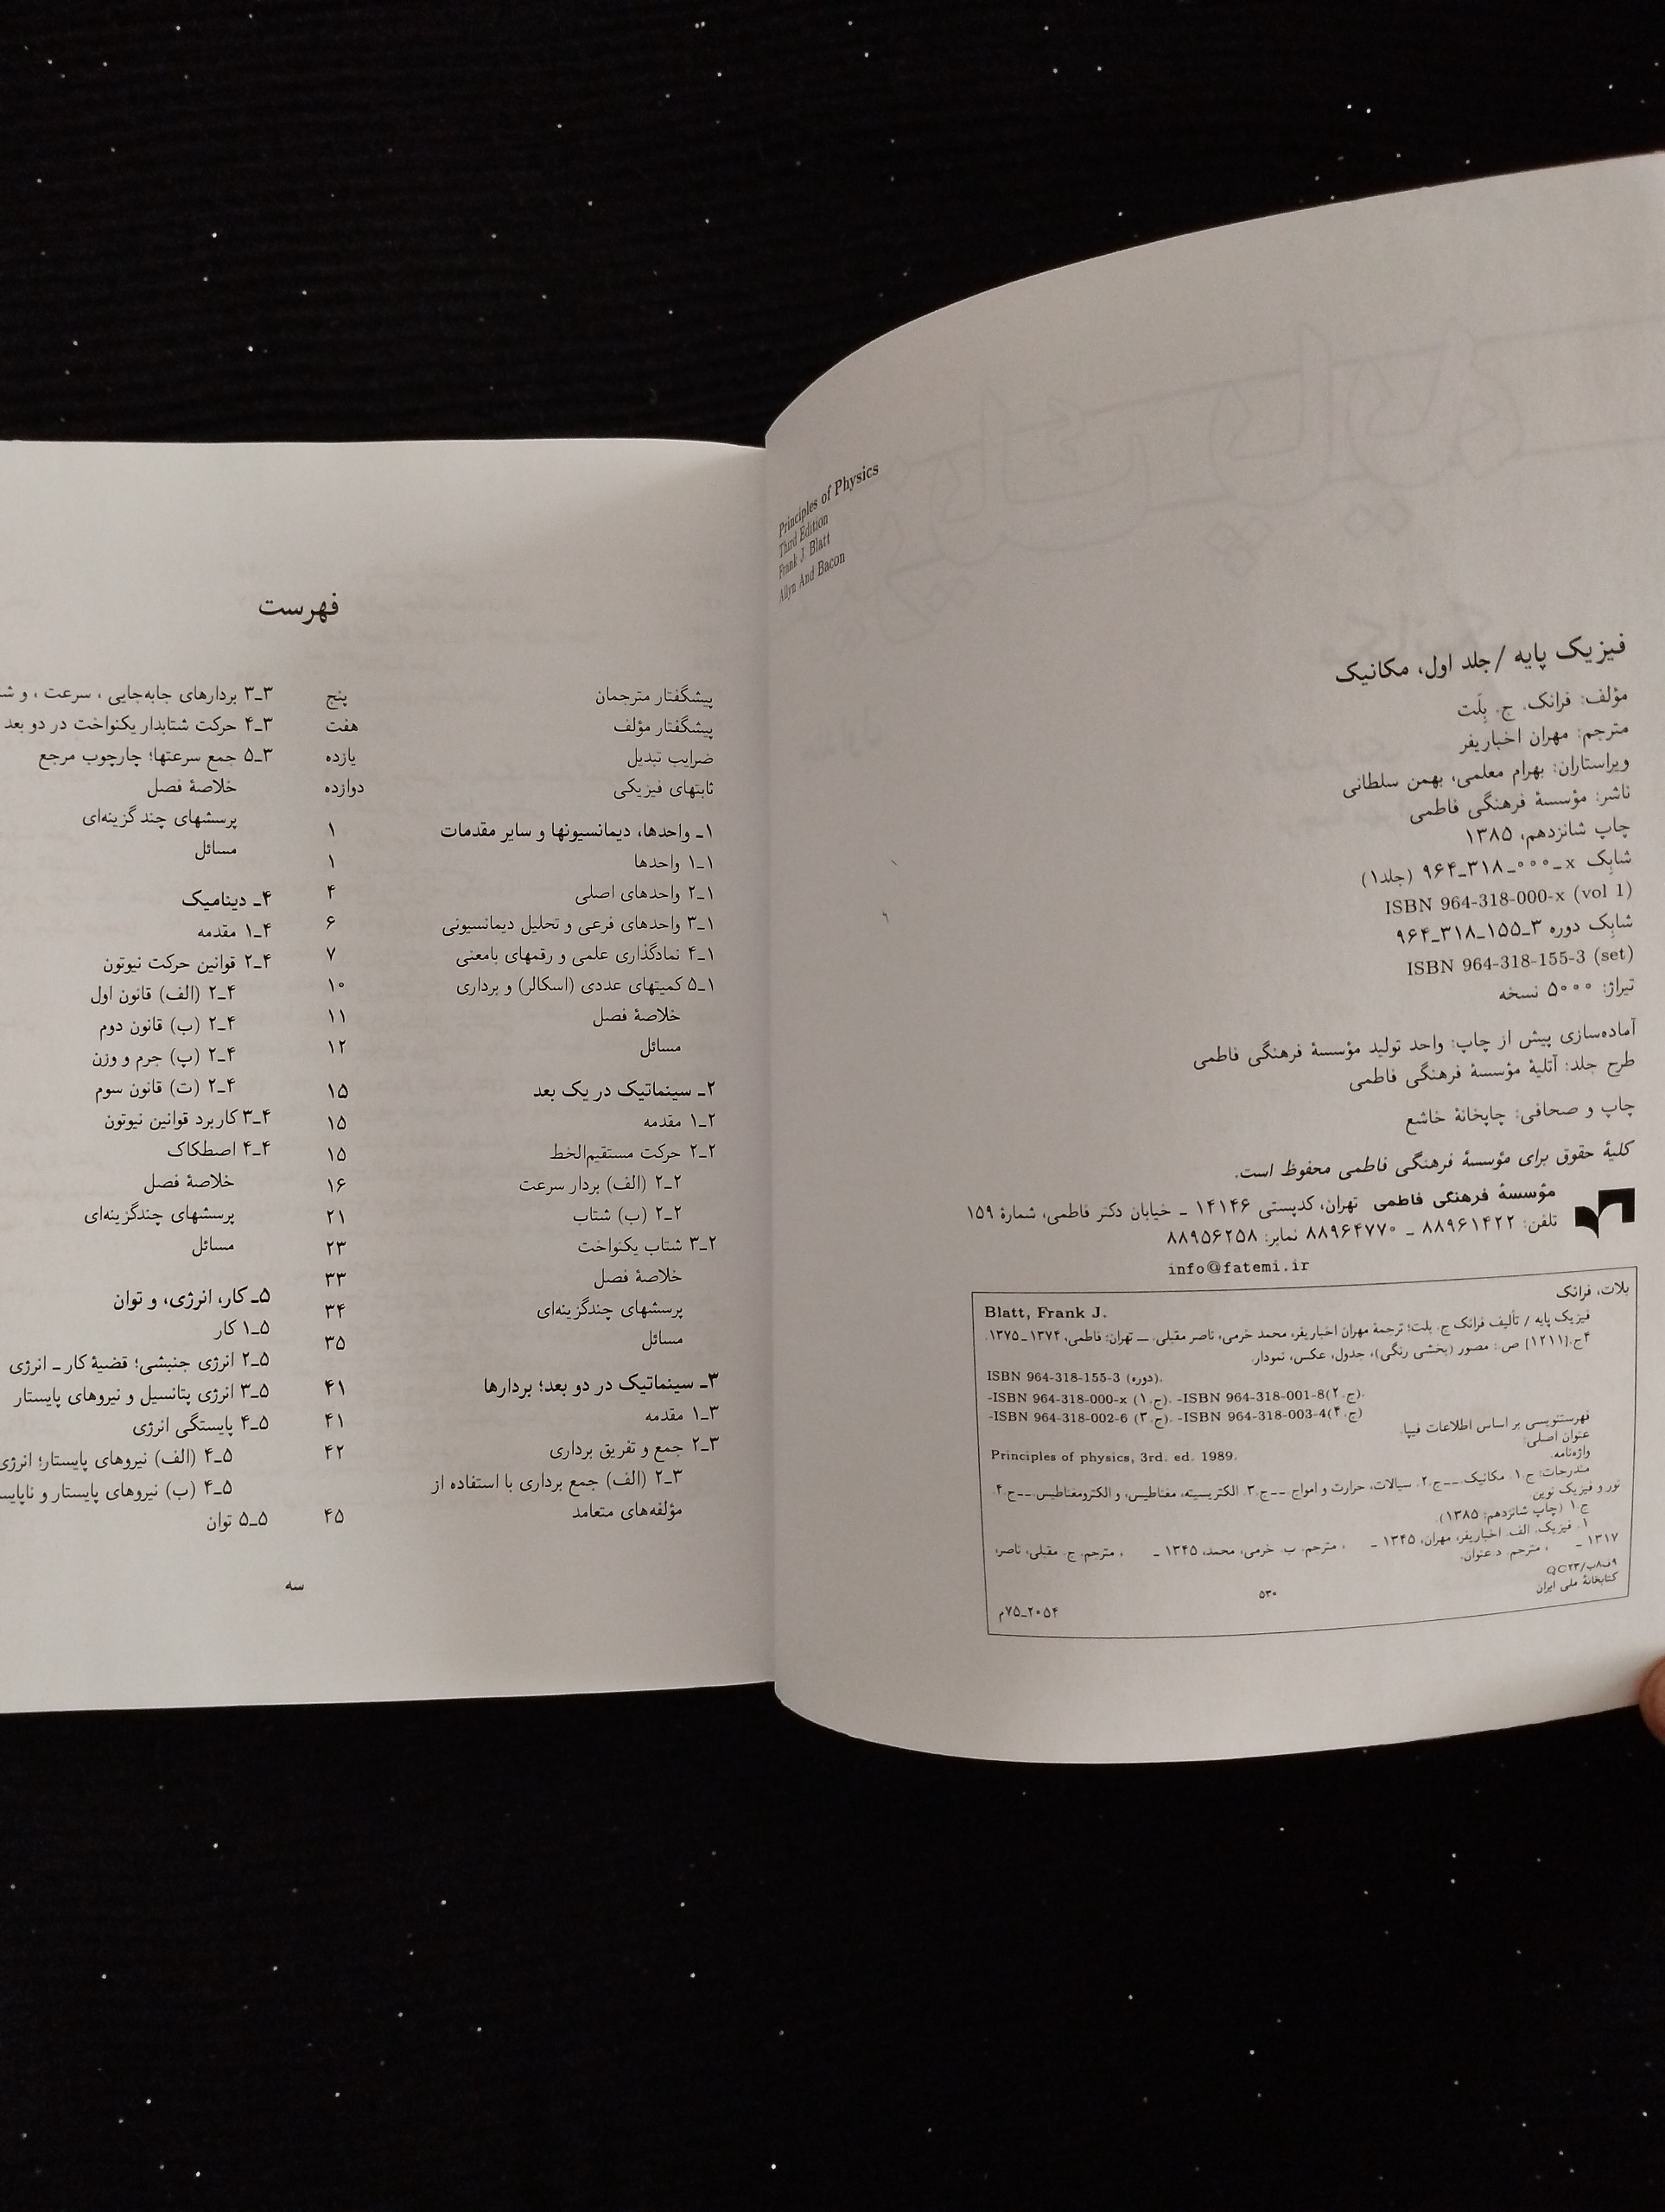 Principles of Physics
Third Edition
Frank J. Blatt
Allyn And Bacon
فیزیک پایه /جلد اول، مکانیک
مؤلف: فرانک. ج. بِلَت
مترجم: مهران اخباریفر
ویراستاران: بهرام معلمی، بهمن سلطانی
ناشر: مؤسسهٔ فرهنگی فاطمی
چاپ شانزدهم، ۱۳۸۵
شابِک x_۰۰۰_۳۱۸_۹۶۴ (جلد۱)
ISBN 964-318-000-x (vol 1)
شابِک دوره ۳_۱۵۵_۳۱۸_۹۶۴
ISBN 964-318-155-3 (set)
تیراژ: ۵۰۰۰ نسخه
آماده‌سازی پیش از چاپ: واحد تولید مؤسسهٔ فرهنگی فاطمی
طرح جلد: آتلیهٔ مؤسسهٔ فرهنگی فاطمی
چاپ و صحافی: چاپخانهٔ خاشع
کلیهٔ حقوق برای مؤسسهٔ فرهنگی فاطمی محفوظ است.
مؤسسهٔ فرهنگی فاطمی تهران، کدپستی ۱۴۱۴۶ _ خیابان دکتر فاطمی، شمارهٔ ۱۵۹
تلفن: ۸۸۹۶۱۴۲۲ _ ۸۸۹۶۴۷۷۰ نمابر: ۸۸۹۵۶۲۵۸
info@fatemi.ir
بلات، فرانک
Blatt, Frank J.
فیزیک پایه / تألیف فرانک ج. بلت؛ ترجمهٔ مهران اخباریفر، محمد خرمی، ناصر مقبلی. — تهران: فاطمی، ۱۳۷۴_۱۳۷۵.
۴ج.[۱۲۱۱] ص.: مصور (بخشی رنگی)، جدول، عکس، نمودار.
ISBN 964-318-155-3 (دوره).
-ISBN 964-318-000-x (ج.۱). -ISBN 964-318-001-8(ج.۲).
-ISBN 964-318-002-6 (ج.۳). -ISBN 964-318-003-4(ج.۴)
فهرستنویسی بر اساس اطلاعات فیپا.
عنوان اصلی:
Principles of physics, 3rd. ed. 1989.
واژه‌نامه.
مندرجات: ج.۱. مکانیک.__ج.۲. سیالات، حرارت و امواج.__ج.۳. الکتریسیته، مغناطیس، و الکترومغناطیس.__ج.۴.
نور و فیزیک نوین.
ج.۱ (چاپ شانزدهم: ۱۳۸۵).
۱. فیزیک. الف. اخباریفر، مهران، ۱۳۴۵ _ ، مترجم. ب. خرمی، محمد، ۱۳۴۵ _ ، مترجم. ج. مقبلی، ناصر،
۱۳۱۷ _ ، مترجم. د.عنوان.
۹ف۸ب/QC۲۳
۵۳۰
کتابخانهٔ ملی ایران
۲۰۵۴_۷۵م
فهرست
پیشگفتار مترجمان پنج
پیشگفتار مؤلف هفت
ضرایب تبدیل یازده
ثابتهای فیزیکی دوازده
۱_ واحدها، دیمانسیونها و سایر مقدمات ۱
۱_۱ واحدها ۱
۱_۲ واحدهای اصلی ۴
۱_۳ واحدهای فرعی و تحلیل دیمانسیونی ۶
۱_۴ نمادگذاری علمی و رقمهای بامعنی ۷
۱_۵ کمیتهای عددی (اسکالر) و برداری ۱۰
خلاصهٔ فصل ۱۱
مسائل ۱۲
۲_ سینماتیک در یک بعد ۱۵
۲_۱ مقدمه ۱۵
۲_۲ حرکت مستقیم‌الخط ۱۵
۲_۲ (الف) بردار سرعت ۱۶
۲_۲ (ب) شتاب ۲۱
۲_۳ شتاب یکنواخت ۲۳
خلاصهٔ فصل ۳۳
پرسشهای چندگزینه‌ای ۳۴
مسائل ۳۵
۳_ سینماتیک در دو بعد؛ بردارها ۴۱
۳_۱ مقدمه ۴۱
۳_۲ جمع و تفریق برداری ۴۲
۳_۲ (الف) جمع برداری با استفاده از
مؤلفه‌های متعامد ۴۵
۳_۳ بردارهای جابه‌جایی ، سرعت ، و
۳_۴ حرکت شتابدار یکنواخت در دو بعد
۳_۵ جمع سرعتها؛ چارچوب مرجع
خلاصهٔ فصل
پرسشهای چند گزینه‌ای
مسائل
۴_ دینامیک
۴_۱ مقدمه
۴_۲ قوانین حرکت نیوتون
۴_۲ (الف) قانون اول
۴_۲ (ب) قانون دوم
۴_۲ (پ) جرم و وزن
۴_۲ (ت) قانون سوم
۴_۳ کاربرد قوانین نیوتون
۴_۴ اصطکاک
خلاصهٔ فصل
پرسشهای چندگزینه‌ای
مسائل
۵_ کار، انرژی، و توان
۵_۱ کار
۵_۲ انرژی جنبشی؛ قضیهٔ کار _ انرژی
۵_۳ انرژی پتانسیل و نیروهای پایستار
۵_۴ پایستگی انرژی
۵_۴ (الف) نیروهای پایستار؛ انرژی
۵_۴ (ب) نیروهای پایستار و
۵_۵ توان
سه